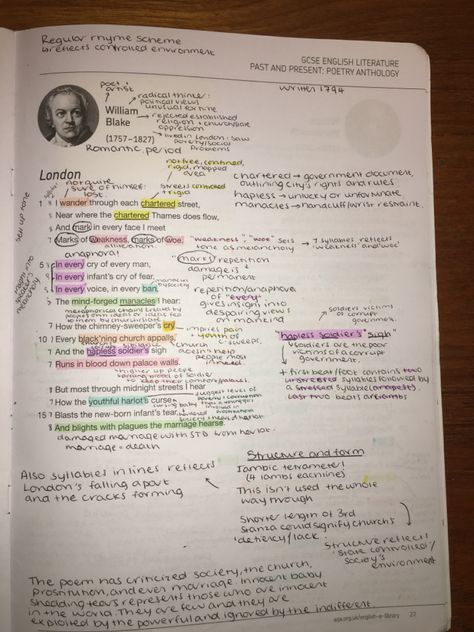 Regular rhyme scheme
reflects controlled environment
GCSE ENGLISH LITERATURE
PAST AND PRESENT: POETRY ANTHOLOGY
written 1794
poet +
artist
radical thinker:
political views
unusual for time
William
Blake
rejected established
religion + church/state
oppression
(1757–1827)
lived in London: saw
poverty/social
problems
Romantic period
not free, confined,
rigid, mapped
over
London
not quite
sure of himself:
lost
streets controlled
+ rigid
chartered → government document,
outlining city's rights and rules
hapless → unlucky or unfortunate
manacles → handcuff/wrist restraint.
1 I wander through each chartered street,
Near where the chartered Thames does flow,
And mark in every face I meet
Marks of weakness, marks of woe.
alliteration
"weakness", "woe" sets
tone as melancholy
7 syllables reflects
'weakness' and 'woe'
anaphora!
(marks) repetition
damage is
permanent
In every cry of every man,
In every infant's cry of fear,
In every voice, in every ban,
repetition/anaphora
of "every"
gives insight into
despairing view
on mankind
The mind-forged manacles I hear:
How the chimney-sweeper's cry
implies pain
+ youth of
sweeps.
soldiers victims
of corrupt
government.
"hapless soldier's sigh"
soldiers are the poor
victims of a corrupt
government.
10 Every black'ning church appalls,
And the hapless soldier's sigh
church
doesn't help
people most
in need
Runs in blood down palace walls.
+ first beat/foot contains two
unstressed syllables followed by
a stressed syllable (anapest).
Last two beats are iambs.
But most through midnight streets I hear
How the youthful harlot's curse
15 Blasts the new-born infant's tear,
And blights with plagues the marriage hearse.
damaged marriage with STD from harlot.
marriage = death
Also syllables in lines reflects
London's falling apart
and the cracks forming
Structure and form
Iambic tetrameter
(4 iambs each line)
This isn't used the whole
way through
Shorter length of 3rd
stanza could signify church's
deficiency/lack.
Structure reflects
'state controlled'/
society's
environment
The poem has criticized society, the church,
prostitution, and even marriage. Innocent baby
shedding tears represents those who are innocent
in the world. They are few and they are
exploited by the powerful and ignored by the indifferent.
aqa.org.uk/english-e-library
27